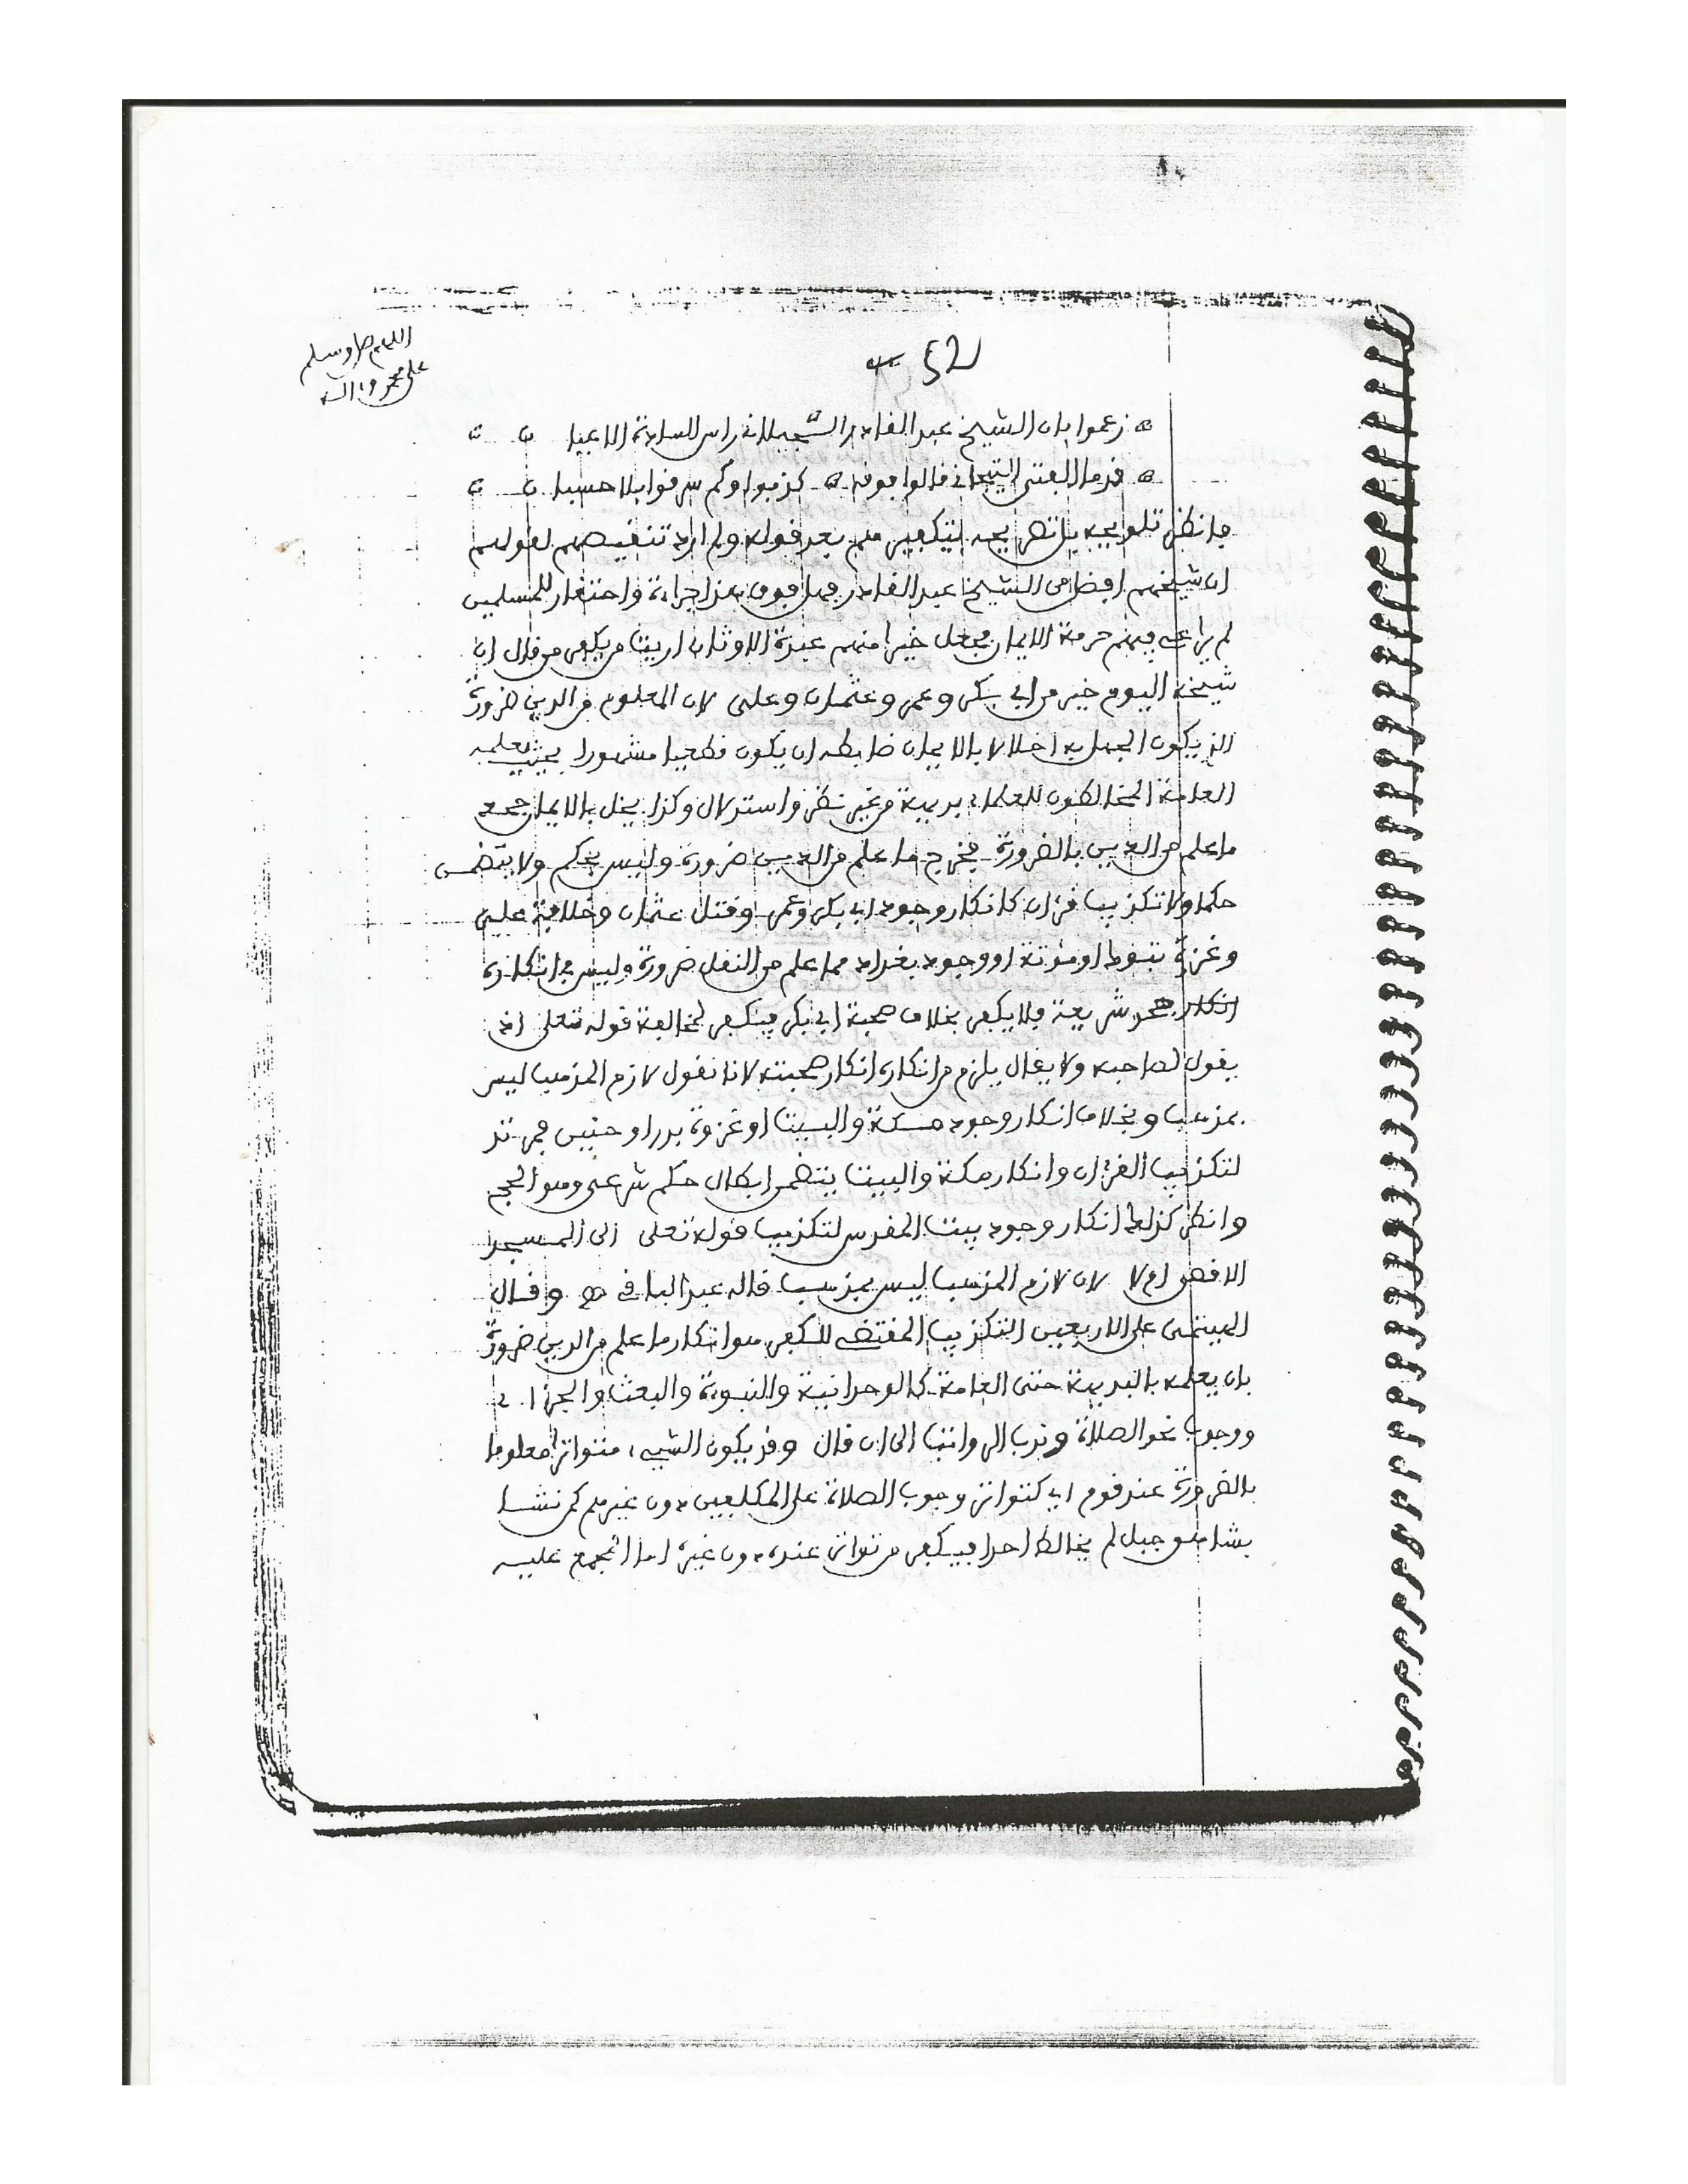 اللهم صل وسلم
على محمد وءاله
زعموا بان الشيخ عبد القادر الجيلاني راس السادة الاعيا ن ن
قدما الفتى التجاني قالوا فوقه كذبوا وكم سرفوا بلا حسبا ن ن
فانظر تلويحه بل تصريحه بتكفير من بعد قوله ولم ارد تنقيصهم لقولهم
ان شيخهم افضل من الشيخ عبد القادر فهل فوق هذا جراءة واحتقار للمسلمين
لم يراعى فيهم حرمة الايمان فجعل خيرا منهم عبدة الاوثان اريت من يكفر من قال ان
شيخه اليوم خير من ابي بكر وعمر وعثمان وعلى لان المعلوم من الدين ضرورة
الذي يكون الجهل به اخلالا بالايمان ضابطه ان يكون قطعيا مشهورا بحيث يعلمه
العامة المخالطون للعلماء بديهة من غير نظر واستدلال وكذا يخل بالايمان جحد
ما علم من الدين بالضرورة فيخرج ما علم من الدين ضرورة وليس بحكم ولا يتضمن
حكما ولا تكذيب قرءان كانكار وجود ابي بكر وعمر وقتل عثمان وخلافة على
وغزوة تبوك او مؤتة او وجود بغداد مما علم من النقل ضرورة وليس في انكاره
انكار جحد شريعة فلا يكفر بخلاف صحبة ابي بكر فيكفر لمخالفة قوله تعلى اذ
يقول لصاحبه ولا يقال يلزم من انكاره انكار صحبته لانا نقول لازم المذهب ليس
بمذهب وبخلاف انكار وجود مكة والبيت او غزوة بدر او حنين فمرتد
لتكذيب القرءان وانكار مكة والبيت يتضمن ابطال حكم شرعى وهو الحج
وانظر كذلك انكار وجود بيت المقدس لتكذيب قوله تعلى الى المسجد
الاقصى ام لا لان لازم المذهب ليس بمذهب قاله عبد الباقى وقال
الهيتمى على الاربعين التكذيب المقتضى للكفر هو انكار ما علم من الدين ضرورة
بان يعلمه بالبديهة حتى العامة كالوحدانية والنبوة والبعث والجزاء
ووجوب نحو الصلاة وندب الرواتب الى ان قال وقد يكون الشيء متواترا معلوما
بالضرورة عند قوم اي كتواتر وجوب الصلاة على المكلفين دون غيرهم كمن نشا
بشاهق جبل لم يخالط احدا فيكفر من تواتر عنده دون غيره اما المجمع عليه